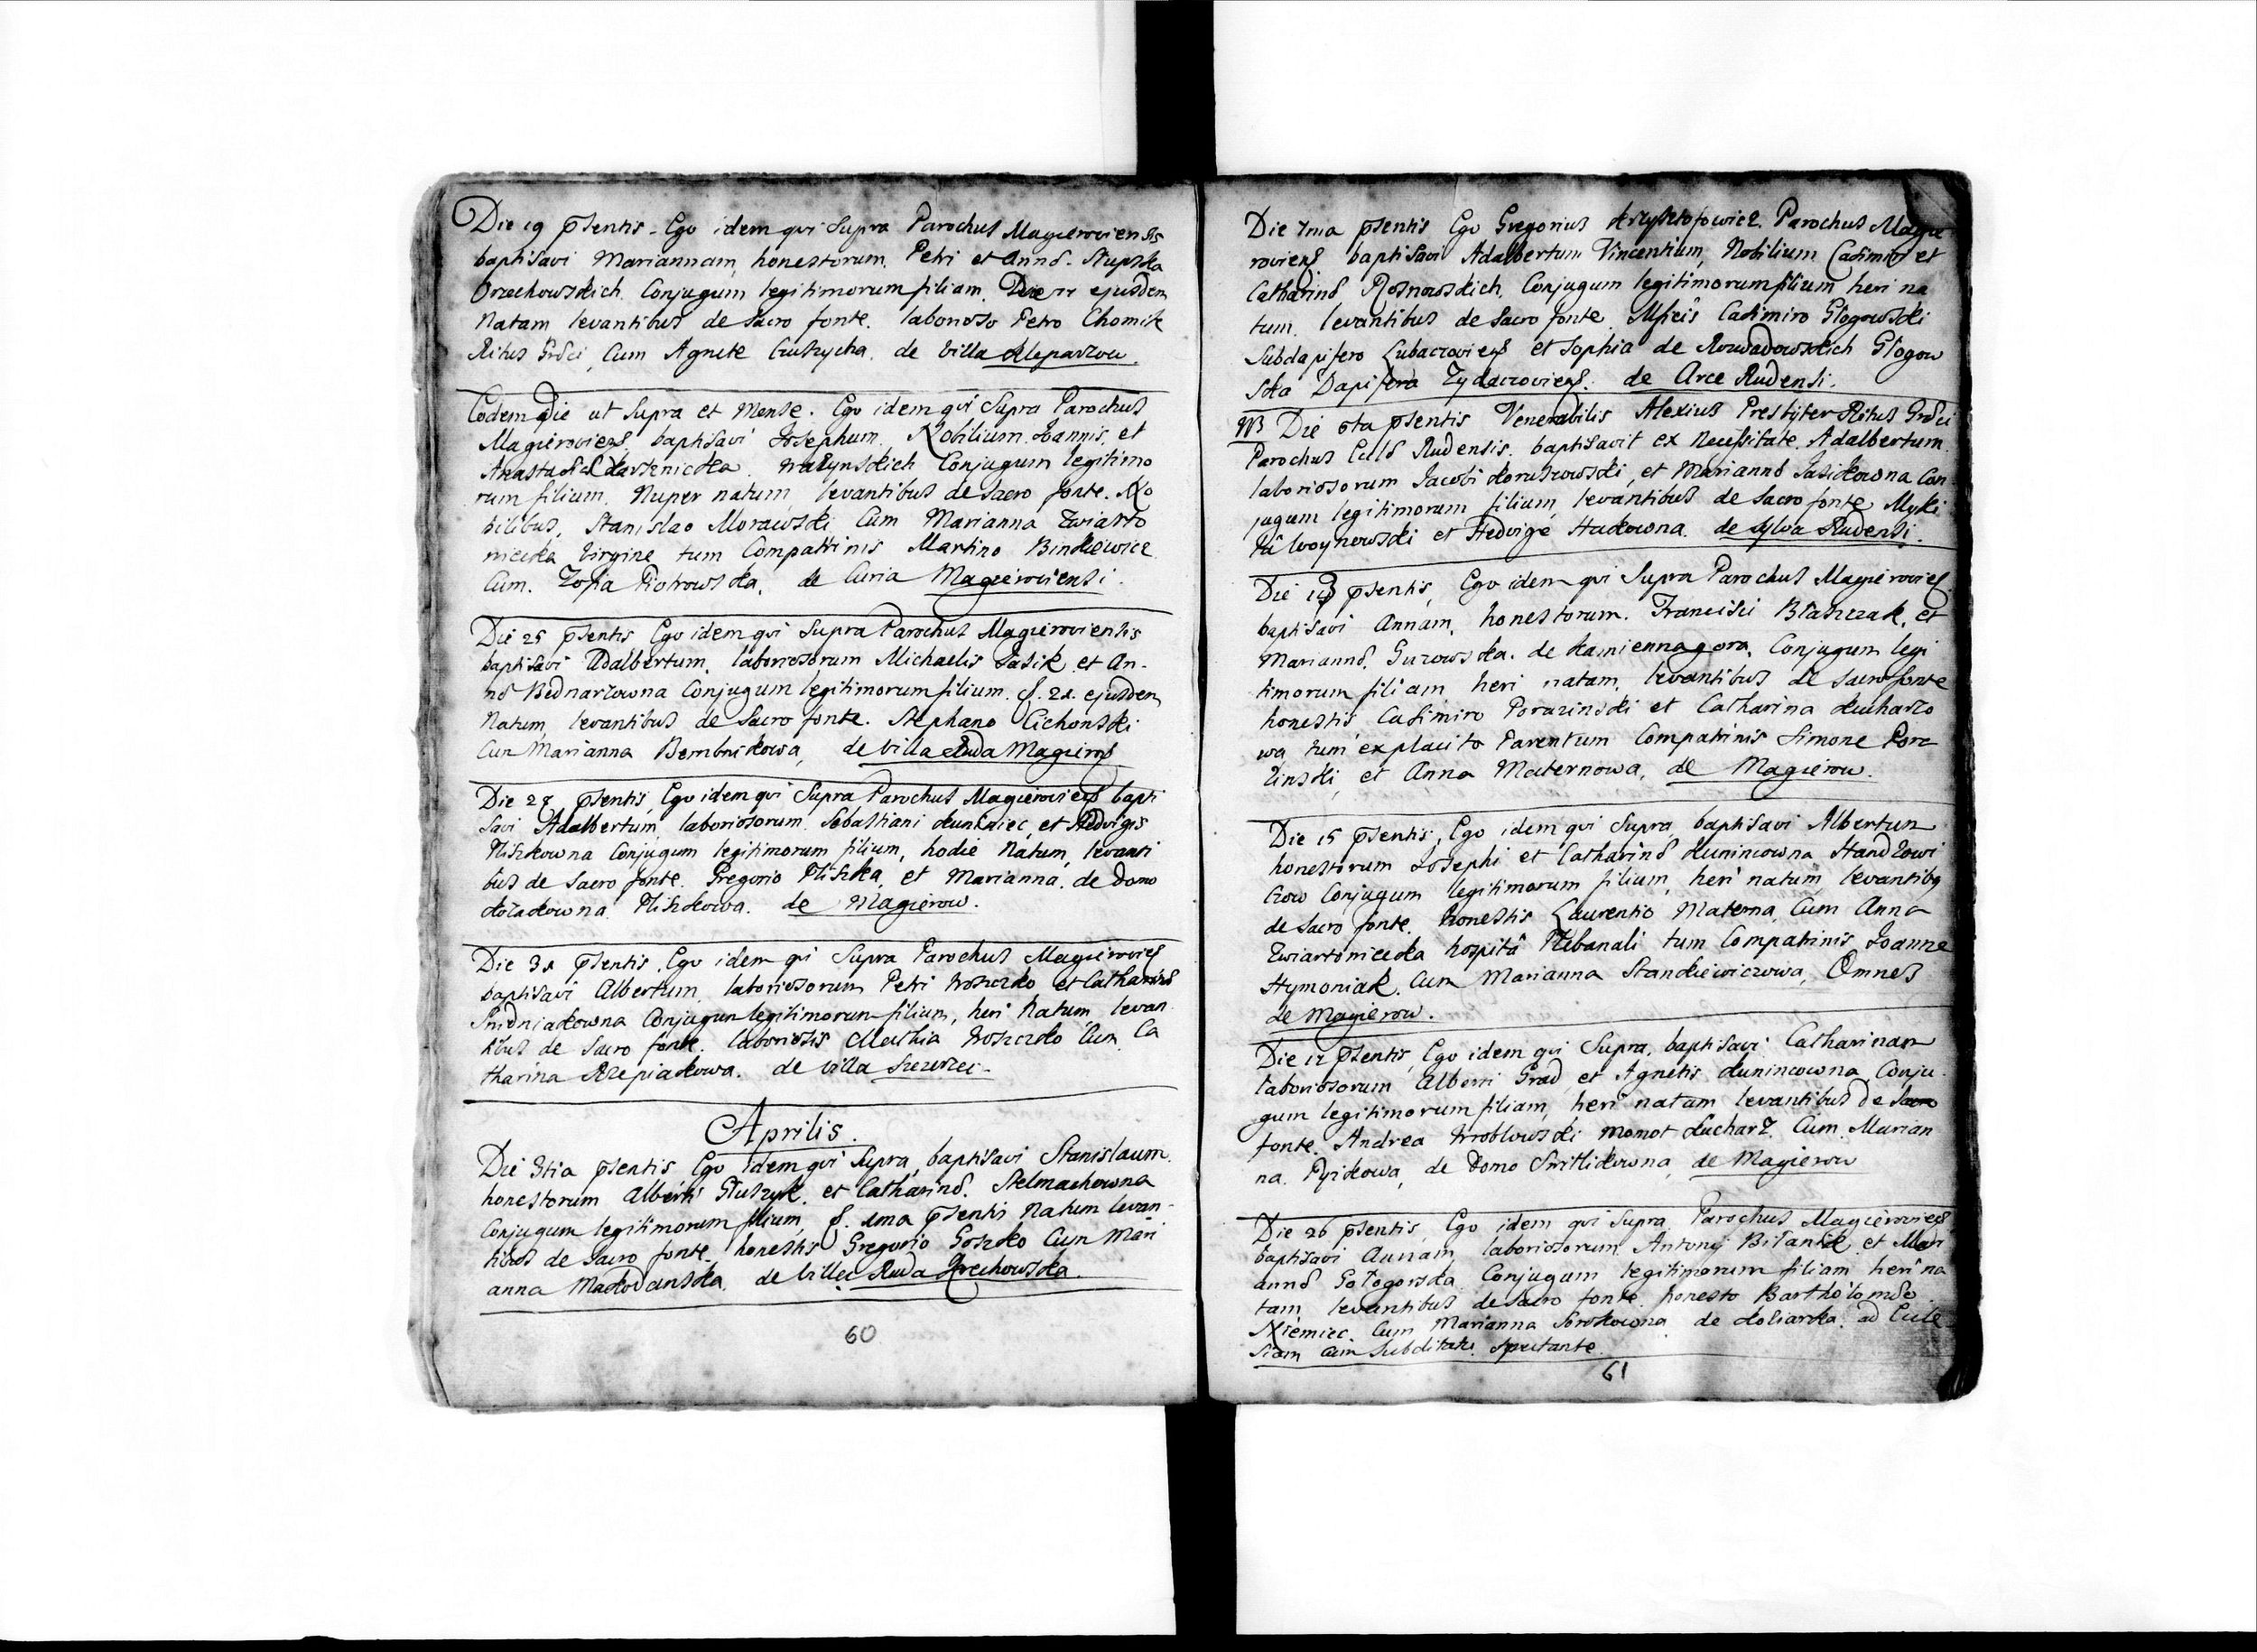 Die 19 pÿsentis. Ego idem qvi Supra Parochus Magieroviensis
baptisavi Mariannam, honestorum. Petri et Annæ. Stupska
Orzechowskich Conjugum legitimorum filiam. Die 17 ejusdem
Natam levantibus de Sacro fonte. laborioso Petro Chomik
Ritus Græci, Cum Agnete de Villa Kleparzow.
Eodem Die ut Supra et Mense. Ego idem qvi Supra Parochus
Magierovieñs baptisavi Josephum. Nobilium Joannis, et
Anastasiæ Conjugum legitimo
rum filium. Nuper natum, levantibus de Sacro fonte. No
bilibus, Stanislao Morawski, Cum Marianna Zwiarto
nicka Virgine tum Compatrinis Martino Binkiewicz
Cum. Zofia Piotrowska, de Curia Magieroviensi.
Die 25 pÿsentis Ego idem qvi Supra Parochus Magieroviensis
baptisavi Adalbertum, laboriosorum Michaelis Jasik et An-
næ Bednarzowna Conjugum legitimorum filium. f. 21. ejusdem
Natum, levantibus de Sacro fonte. Stephano Cichonski
Cum Marianna Bembnikowa, de Villa Ruda Magierows
Die 28 pÿsentis, Ego idem qvi Supra Parochus Magierovieñs bapti
savi Adalbertum, laboriosorum Sebastiani et Hedvigis
Pliszkowna Conjugum legitimorum filium, hodie Natum, levanti
bus de Sacro fonte. Gregorio Pliszka, et Marianna, de Domo
Kozakowna Pliszkowa. de Magierow.
Die 31 pÿsentis. Ego idem qvi Supra Parochus Magierovieñs
baptisavi Albertum, laboriosorum Petri Woszczko et Catharinæ
Conjugum legitimorum filium, heri Natum levan
tibus de Sacro fonte. laboriosis Mathia Woszczko Cum Ca
tharina Rzepiakowa. de villa Szczerzec.
Aprilis.
Die 3tia pÿsentis Ego idem qvi Supra, baptisavi Stanislaum
honestorum Alberti Gluszyk et Catharinæ. Stelmachowna
Conjugum legitimorum filium, f. 1ma pÿsentis Natum levan-
tibus de Sacro fonte. honestis Gregorio Goszko Cum Mari
anna Makodanska. de Villa Ruda Zrechowska.
60
Die 7ma pÿsentis Ego Gregorius Krzysztofowicz Parochus Magie
rovieñs baptisavi Adalbertum Vincentium, Nobilium Casimiri et
Catharinæ Rosnowskich, Conjugum legitimorum filium, heri na
tum. levantibus de Sacro fonte. Mficis Casimiro Glogowski
Subdapifero Lubaczovieñs et Sophia de Rozwadowskich Glogow
ska Dapifera Zydaczovieñs. de Arce Rudensi.
NB Die 6ta pÿsentis Venerabilis Alexius Presbiter Ritus Græci
Parochus Ecclæ Rudensis. baptisavit ex Necessitate. Adalbertum.
laboriosorum Jacobi et Mariannæ Jasikowna Con
jugum legitimorum filium, levantibus de Sacro fonte, Myki
ta Woynowski et Hedvige Hukowna. de Sylva Rudensi.
Die 13 pÿsentis, Ego idem qvi Supra Parochus Magierovieñs
baptisavi Annam, honestorum. Francisci Blaszczak, et
Mariannæ. Gurowska. de Kamiennagora. Conjugum legi
timorum filiam heri natam, levantibus de Sacro fonte
honestis Casimiro Porazinski et Catharina Kucharzo
wa tum ex placito Parentum Compatrinis Simone Pora
zinski, et Anna Maternowa, de Magierow.
Die 15 pÿsentis, Ego idem qvi Supra, baptisavi Albertum
honestorum Josephi et Catharinæ Kunincowna Handzowi
czow Conjugum legitimorum filium, heri natum, levantibq
de Sacro fonte. honestis Laurentio Materna Cum Anna
Zwiartonicka hospita Plebanali tum Compatrinis Joanne
Hymoniak. Cum Marianna Stankiewiczowa, Omnes
de Magierow.
Die 17 pÿsentis, Ego idem qvi Supra, baptisavi Catharinam
laboriosorum, Alberti Grad et Agnetis Kunincowna Conju-
gum legitimorum filiam, heri natam levantibus de Sacro
fonte. Andrea Wroblowski Momot Kucharz. Cum. Marian
na. Pyzikowa, de Domo Switlikowna, de Magierow
Die 26 pÿsentis, Ego idem qvi Supra Parochus Magierovieñs
baptisavi Annam, laboriosorum Antonij Bilanik et Mari
annæ Gologorska Conjugum legitimorum filiam heri na
tam levantibus de Sacro fonte. honesto Bartholomæo
Niemiec. Cum Marianna Sorokowna de Koliarka. ad Eccle
siam Cum Subditatu. Spectante.
61